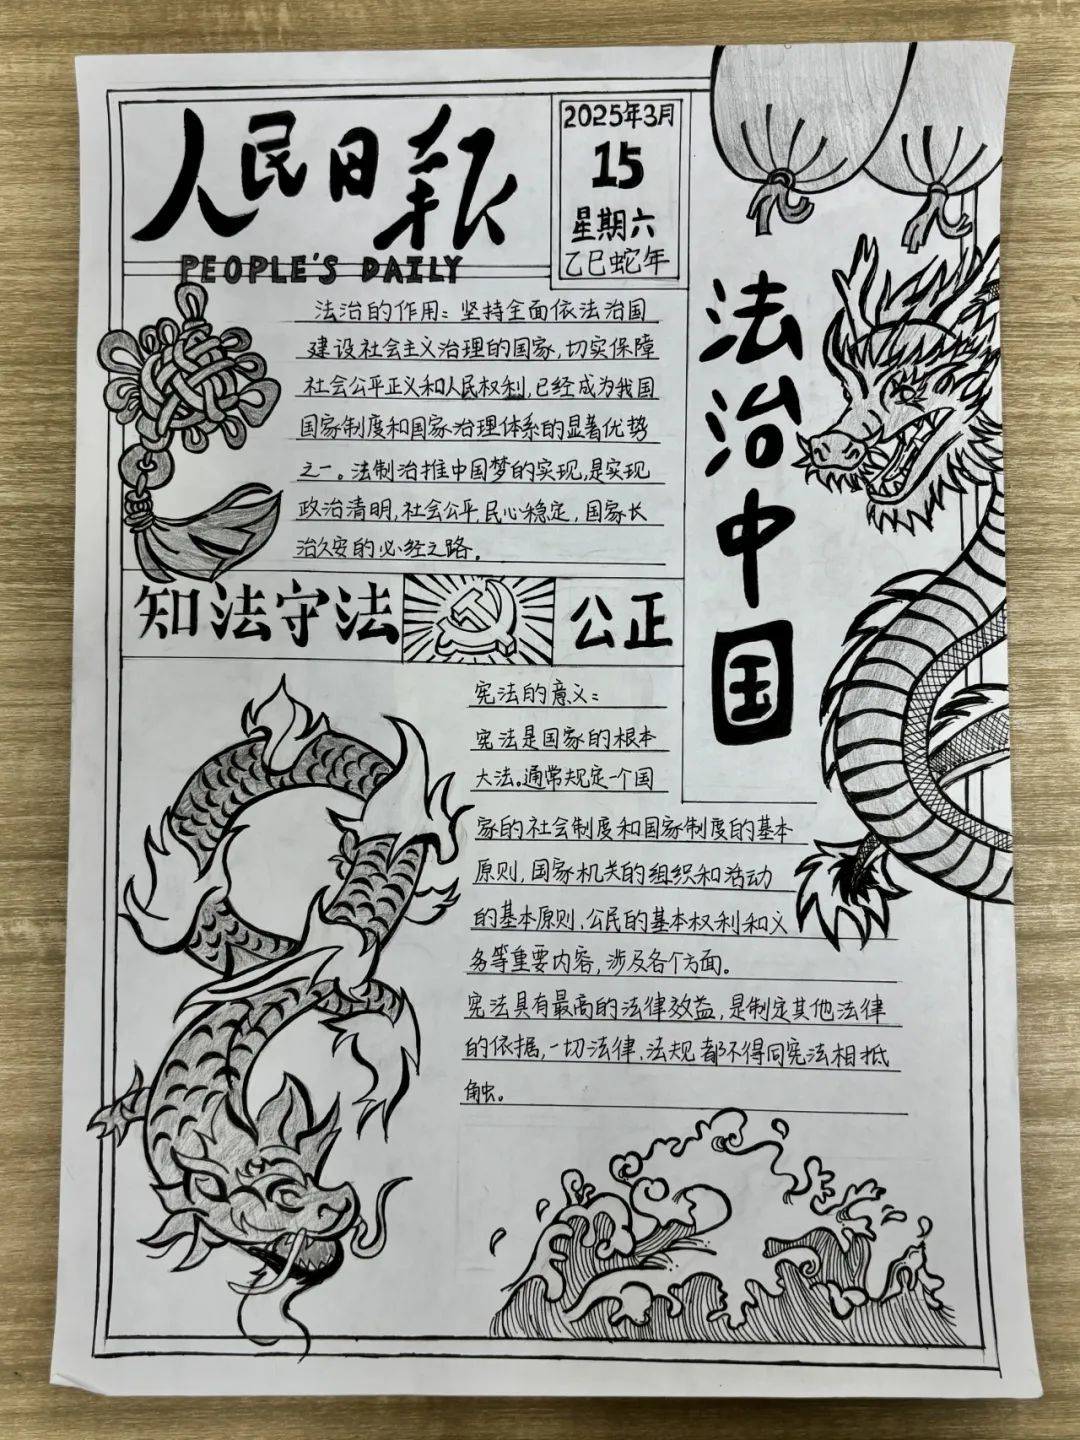 人民日报
PEOPLE'S DAILY
2025年3月
15
星期六
乙巳蛇年
法治中国
法治的作用：坚持全面依法治国
建设社会主义治理的国家，切实保障
社会公平正义和人民权利，已经成为我国
国家制度和国家治理体系的显著优势
之一。法制治推中国梦的实现，是实现
政治清明，社会公平，民心稳定，国家长
治久安的必经之路。
知法守法
公正
宪法的意义：
宪法是国家的根本
大法。通常规定一个国
家的社会制度和国家制度的基本
原则，国家机关的组织和活动
的基本原则，公民的基本权利和义
务等重要内容，涉及各个方面。
宪法具有最高的法律效益，是制定其他法律
的依据，一切法律、法规都不得同宪法相抵
触。